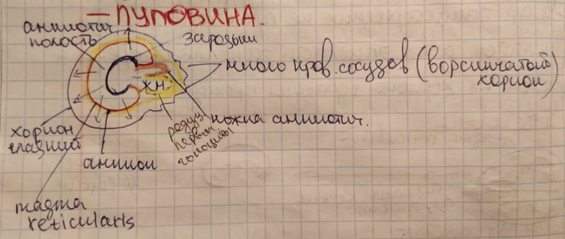 — ПУПОВИНА.
амниотич.
полость
зародыш
много кров. сосудов (ворсинчатый
хорион)
х.н.
ножка амниотич.
хорион
гладкий
амнион
magma
reticularis